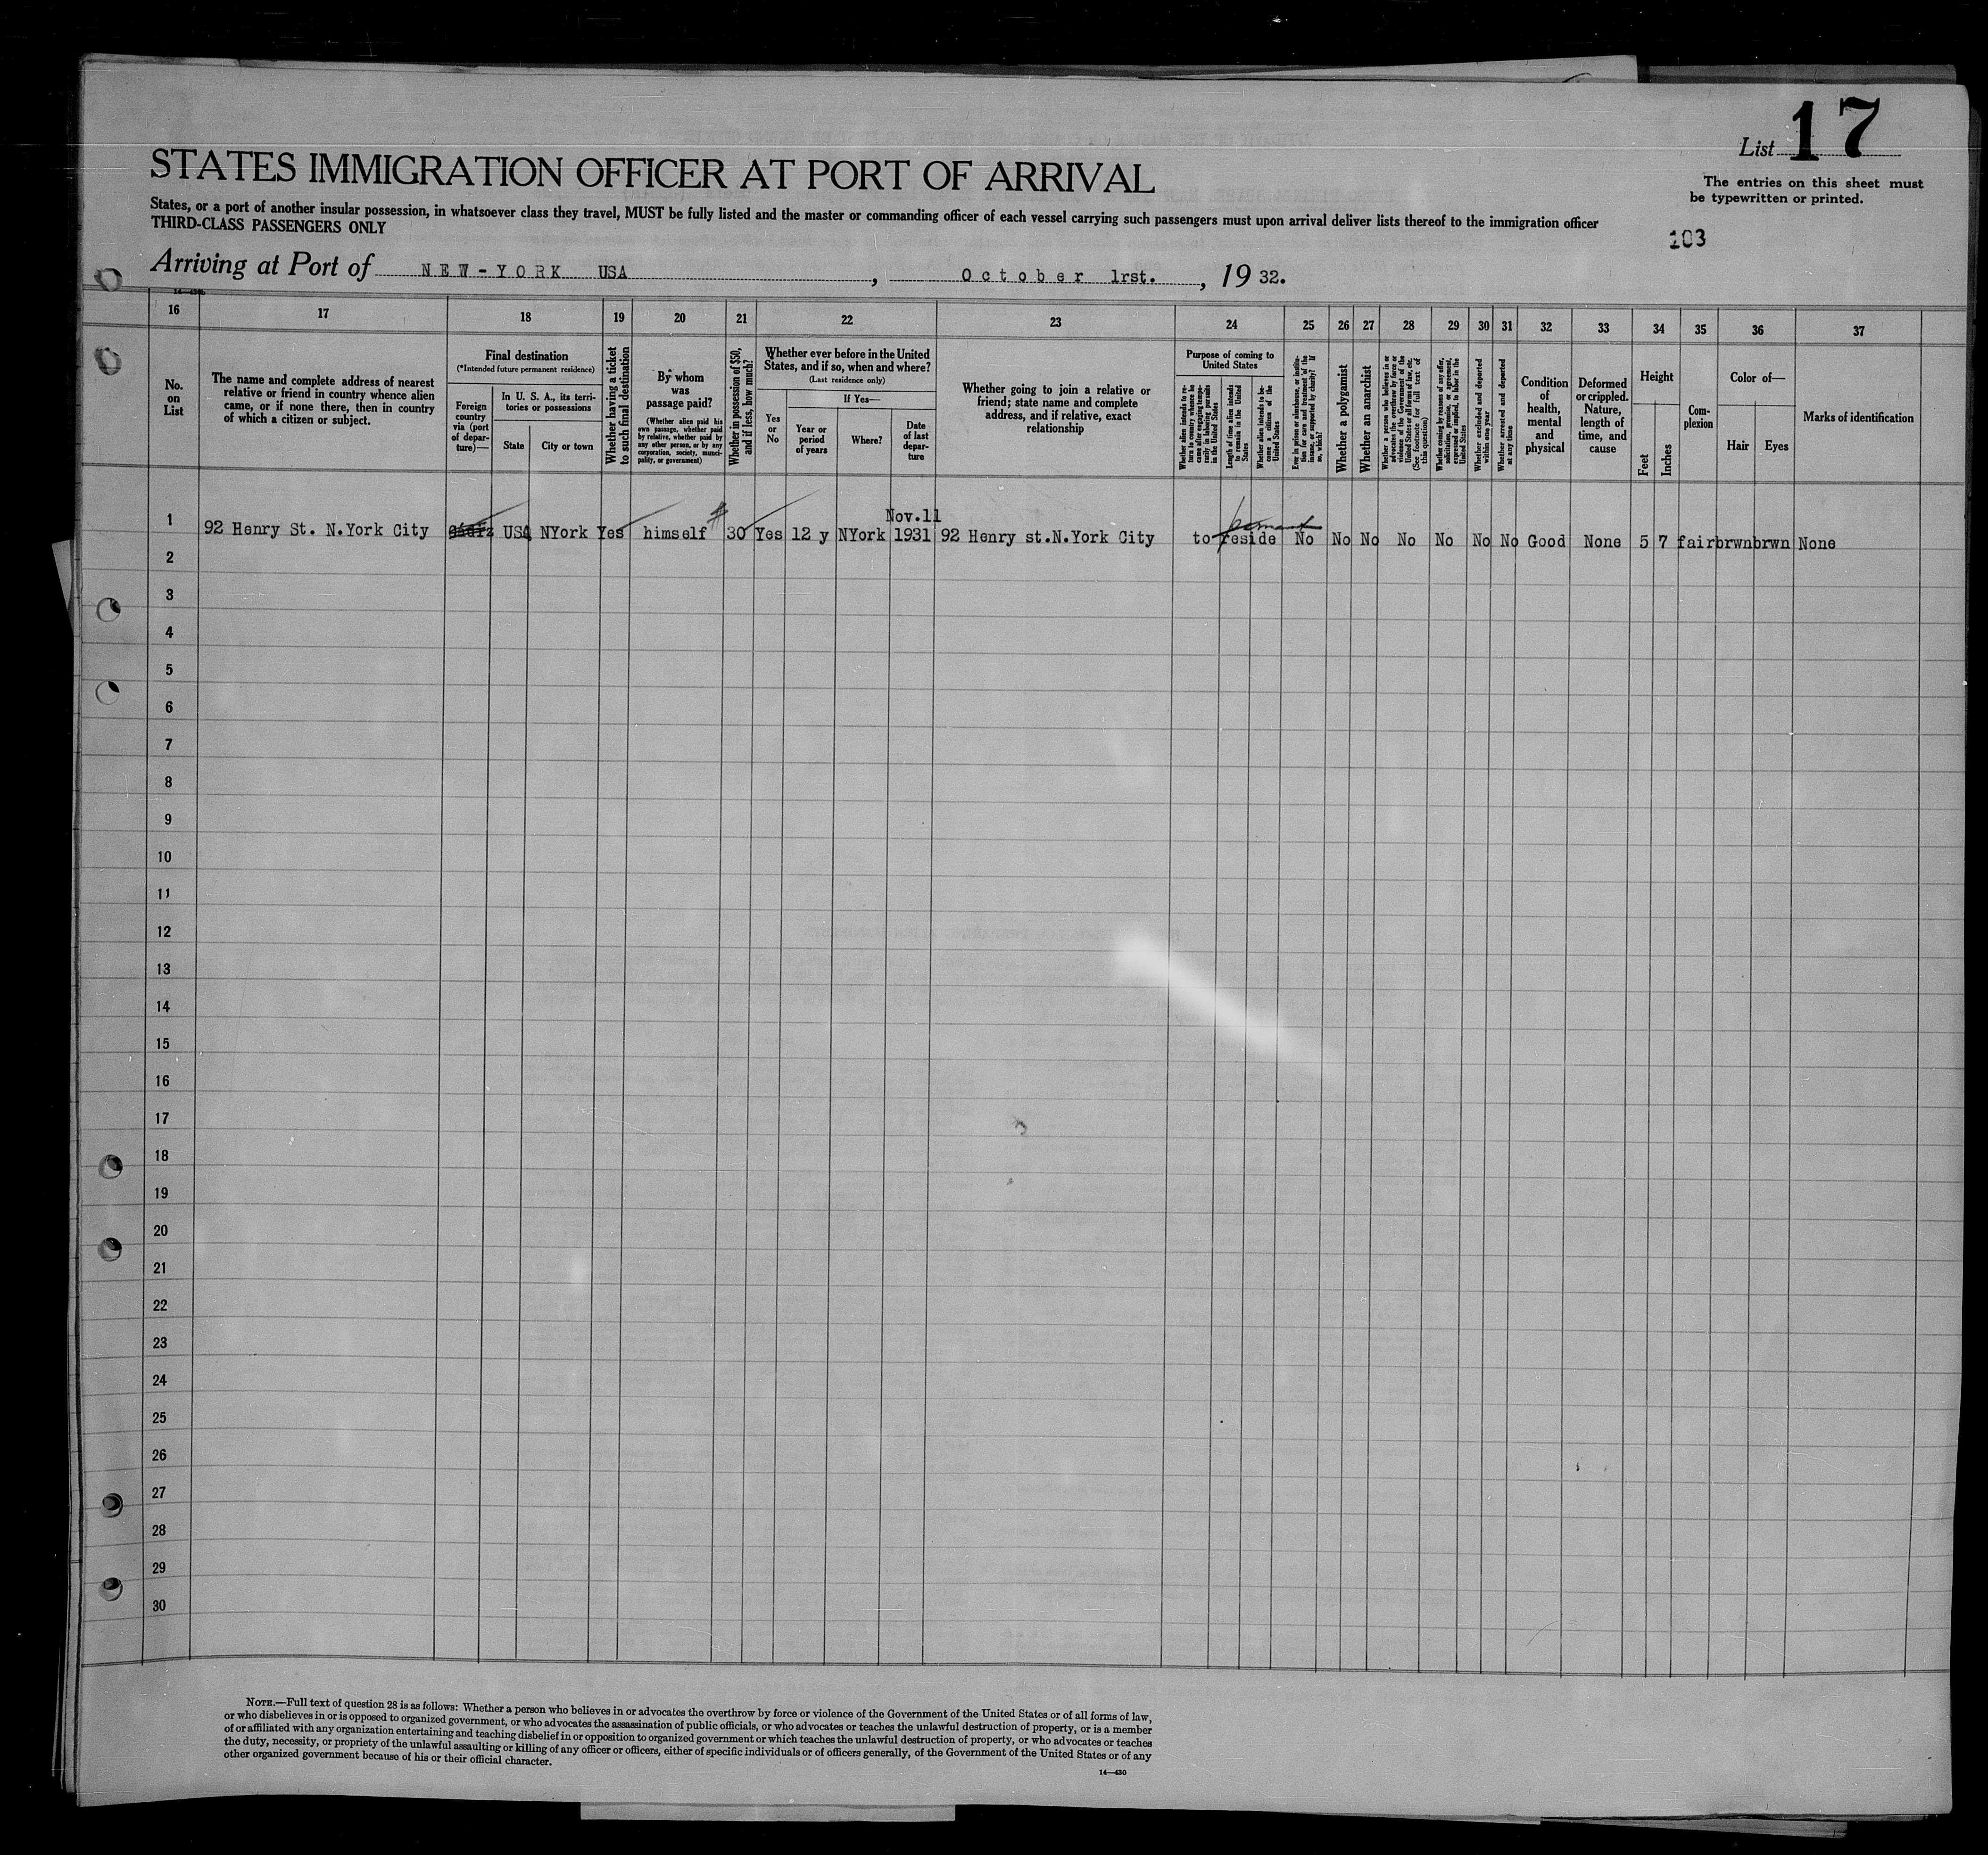 List 17
STATES IMMIGRATION OFFICER AT PORT OF ARRIVAL
The entries on this sheet must
be typewritten or printed.
States, or a port of another insular possession, in whatsoever class they travel, MUST be fully listed and the master or commanding officer of each vessel carrying such passengers must upon arrival deliver lists thereof to the immigration officer
THIRD-CLASS PASSENGERS ONLY
103
Arriving at Port of NEW-YORK USA, October 1rst., 19 32.
16 17 18 19 20 21 22 23 24 25 26 27 28 29 30 31 32 33 34 35 36 37
No. on List
The name and complete address of nearest
relative or friend in country whence alien
came, or if none there, then in country
of which a citizen or subject.
Final destination
(*Intended future permanent residence)
Foreign country via (port of departure)—
In U. S. A., its territories or possessions
State
City or town
Whether having a ticket to such final destination
By whom was passage paid?
(Whether alien paid his own passage, whether paid by relative, whether paid by any other person, or by any corporation, society, municipality, or government)
Whether in possession of $50, and if less, how much?
Whether ever before in the United
States, and if so, when and where?
(Last residence only)
Yes or No
If Yes—
Year or period of years
Where?
Date of last departure
Whether going to join a relative or
friend; state name and complete
address, and if relative, exact
relationship
Purpose of coming to United States
Whether alien intends to return to country whence he came after engaging temporarily in laboring pursuits in the United States
Length of time alien intends to remain in the United States
Whether alien intends to become a citizen of the United States
Ever in prison or almshouse, or institution for care and treatment of the insane, or supported by charity? If so, which?
Whether a polygamist
Whether an anarchist
Whether a person who believes in or advocates the overthrow by force or violence of the Government of the United States or all forms of law, etc. (See footnote for full text of this question)
Whether coming by reasons of any offer, solicitation, promise, or agreement, expressed or implied, to labor in the United States
Whether excluded and deported within one year
Whether arrested and deported at any time
Condition of health, mental and physical
Deformed or crippled. Nature, length of time, and cause
Height
Feet
Inches
Complexion
Color of—
Hair
Eyes
Marks of identification
Nov.11
1 92 Henry St. N.York City USA NYork Yes himself # 30 Yes 12 y NYork 1931 92 Henry st.N.York City to reside No No No No No No No Good None 5 7 fair brwn brwn None
2
3
4
5
6
7
8
9
10
11
12
13
14
15
16
17
18
19
20
21
22
23
24
25
26
27
28
29
30
NOTE.—Full text of question 28 is as follows: Whether a person who believes in or advocates the overthrow by force or violence of the Government of the United States or of all forms of law,
or who disbelieves in or is opposed to organized government, or who advocates the assassination of public officials, or who advocates or teaches the unlawful destruction of property, or is a member
of or affiliated with any organization entertaining and teaching disbelief in or opposition to organized government or which teaches the unlawful destruction of property, or who advocates or teaches
the duty, necessity, or propriety of the unlawful assaulting or killing of any officer or officers, either of specific individuals or of officers generally, of the Government of the United States or of any
other organized government because of his or their official character.
14—430